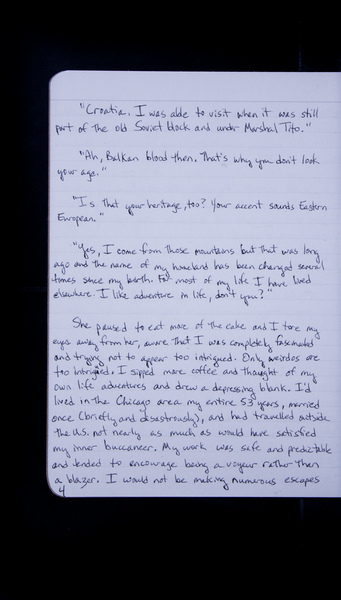 "Croatia. I was able to visit when it was still
part of the old Soviet block and under Marshal Tito."
"Ah, Balkan blood then. That's why you don't look
your age."
"Is that your heritage, too? Your accent sounds Eastern
European."
"Yes, I come from those mountains but that was long
ago and the name of my homeland has been changed several
times since my birth. For most of my life I have lived
elsewhere. I like adventure in life, don't you?"
She paused to eat more of the cake and I tore my
eyes away from her, aware that I was completely fascinated
and trying not to appear too intrigued. Only weirdos are
too intrigued. I sipped more coffee and thought of my
own life adventures and drew a depressing blank. I'd
lived in the Chicago area my entire 53 years, married
once (briefly and disastrously), and had travelled outside
the U.S. not nearly as much as would have satisfied
my inner buccaneer. My work was safe and predictable
and tended to encourage being a voyeur rather than
a blazer. I would not be making numerous escapes
4